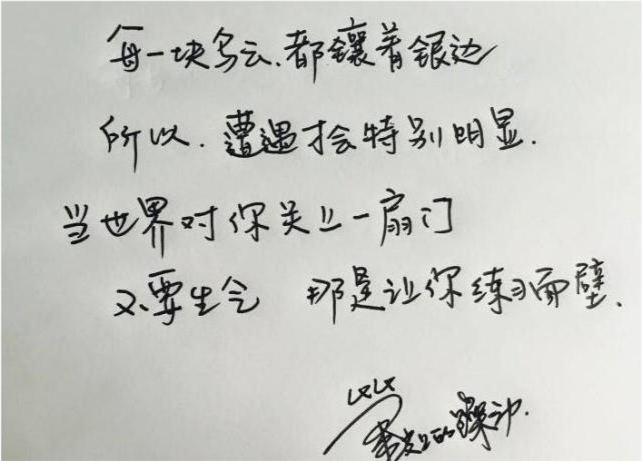 每一块乌云.都镶着银边
所以.遭遇才会特别明显.
当世界对你关上一扇门
不要生气 那是让你练习面壁.